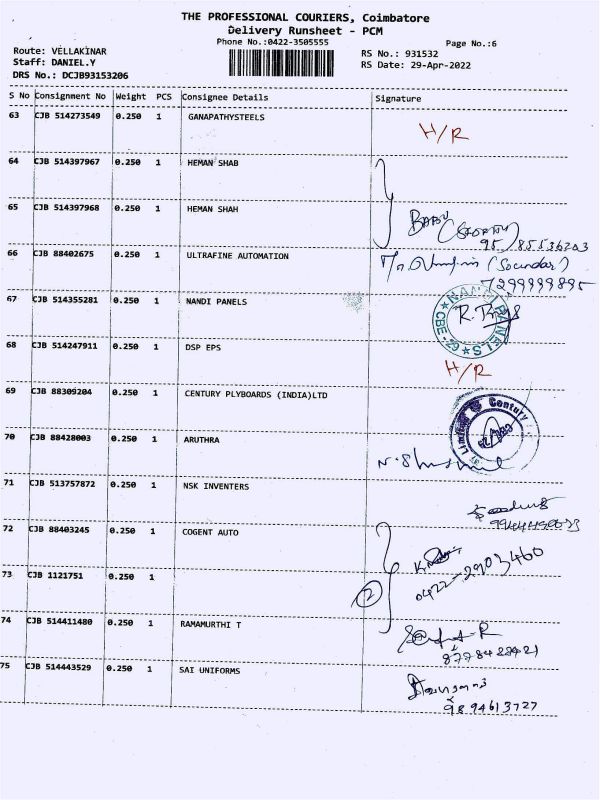 THE PROFESSIONAL COURIERS, Coimbatore
Delivery Runsheet - PCM
Phone No.:0422-3505555
Page No.:6
Route: VELLAKINAR
RS No.: 931532
Staff: DANIEL.Y
RS Date: 29-Apr-2022
DRS No.: DCJB93153206
S No Consignment No Weight PCS Consignee Details Signature
63 CJB 514273549 0.250 1 GANAPATHYSTEELS
H/R
64 CJB 514397967 0.250 1 HEMAN SHAB
65 CJB 514397968 0.250 1 HEMAN SHAH
BABU
66 CJB 88402675 0.250 1 ULTRAFINE AUTOMATION
(Soundar)
7299999895
67 CJB 514355281 0.250 1 NANDI PANELS
NANDI PANELS
CBE-29
68 CJB 514247911 0.250 1 DSP EPS
H/R
69 CJB 88309204 0.250 1 CENTURY PLYBOARDS (INDIA)LTD
Century
Limited
70 CJB 88428003 0.250 1 ARUTHRA
71 CJB 513757872 0.250 1 NSK INVENTERS
72 CJB 88403245 0.250 1 COGENT AUTO
0422-2903460
73 CJB 1121751 0.250 1
2
74 CJB 514411480 0.250 1 RAMAMURTHI T
75 CJB 514443529 0.250 1 SAI UNIFORMS
9894613727